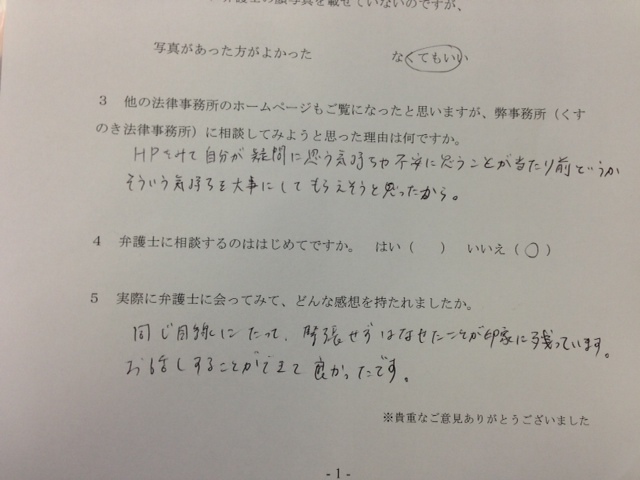 弁護士の顔写真を載せていないのですが、
写真があった方がよかった　　なくてもいい
３　他の法律事務所のホームページもご覧になったと思いますが、弊事務所（くす
のき法律事務所）に相談してみようと思った理由は何ですか。
HPをみて自分が疑問に思う気持ちや不安に思うことが当たり前というか
そういう気持ちを大事にしてもらえそうと思ったから。
４　弁護士に相談するのははじめてですか。　はい（　）　いいえ（○）
５　実際に弁護士に会ってみて、どんな感想を持たれましたか。
同じ目線にたって、緊張せずはなせたことが印象に残っています。
お話しすることができて良かったです。
※貴重なご意見ありがとうございました
- 1 -